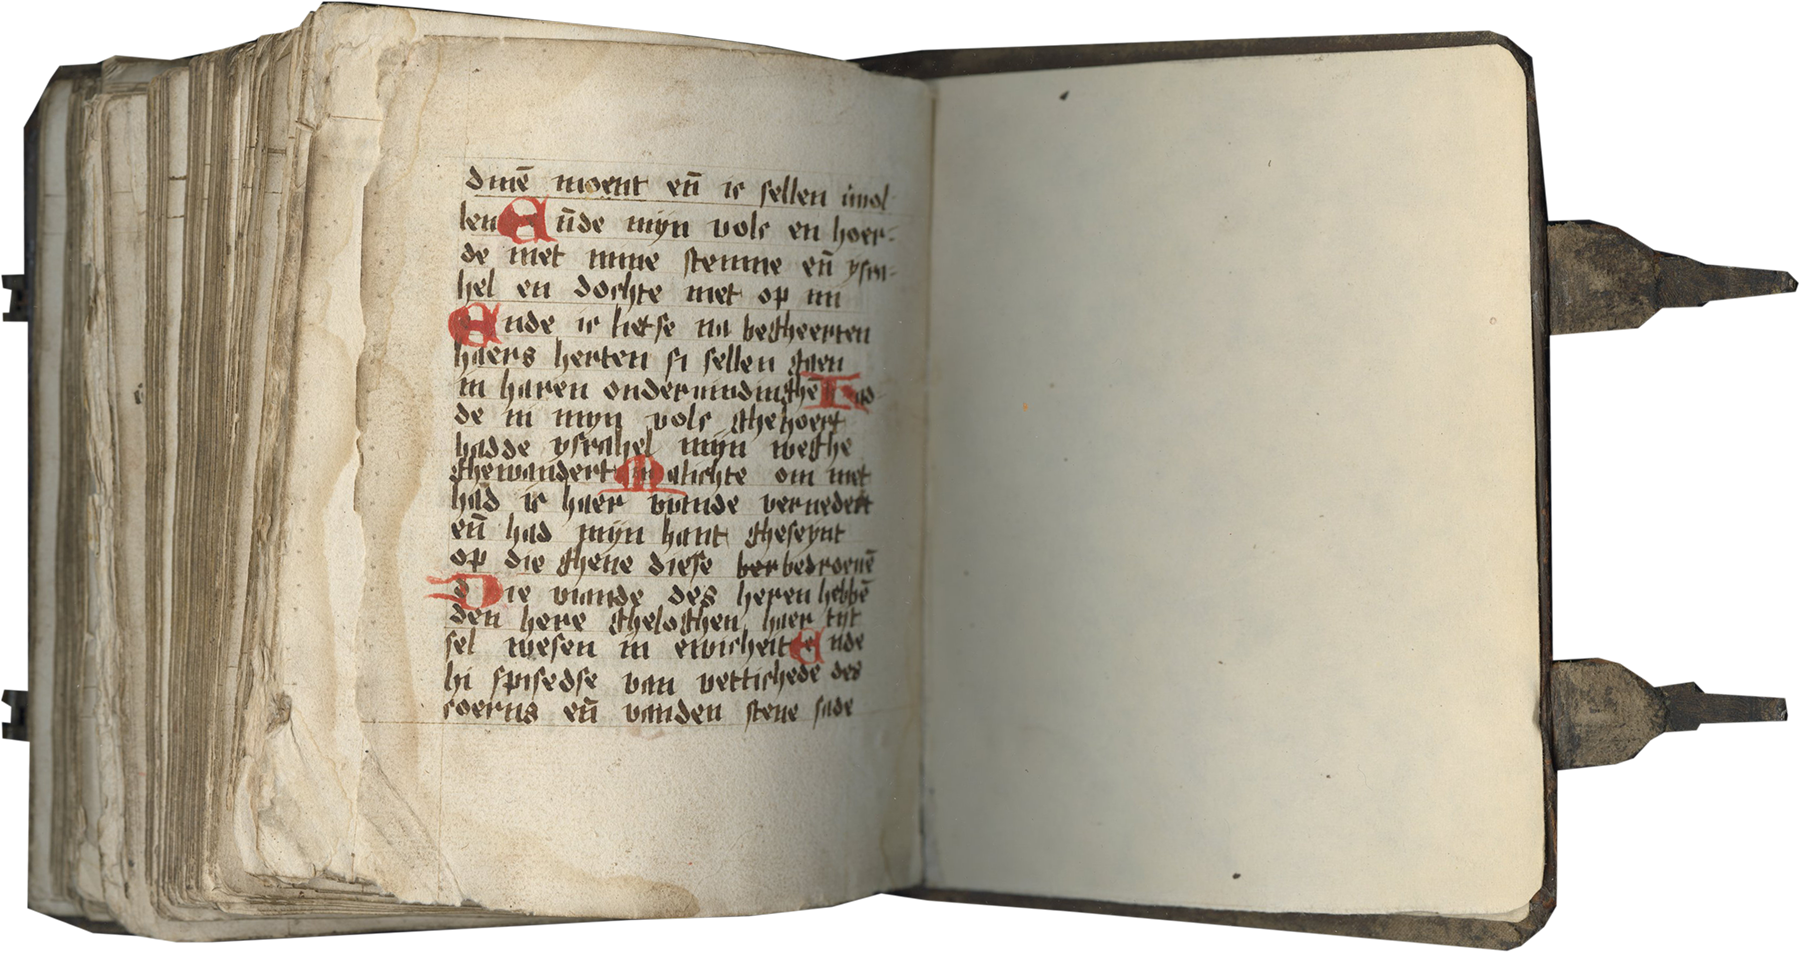 dinē mont eñ ic sellen uwol
len Eñde mijn volc en hoer-
de niet mine stemme eñ ysra-
hel en dochte niet op mi
Ende ic lietse na begheerten
haers herten si sellen gaen
in haren ondervindinghē Had-
de mi mijn volc ghehoert
hadde ysrahel mijn weghe
ghewandert Malichte om niet
had ic haer viande vernedert
eñ had mijn hant gheseynt
op die ghene diese verbedroevē
Die viande des heren hebbē
den here gheloghen haer tijt
sel wesen in ewicheit Ende
hi spisedse van vettichede des
coerns eñ vanden stene sade